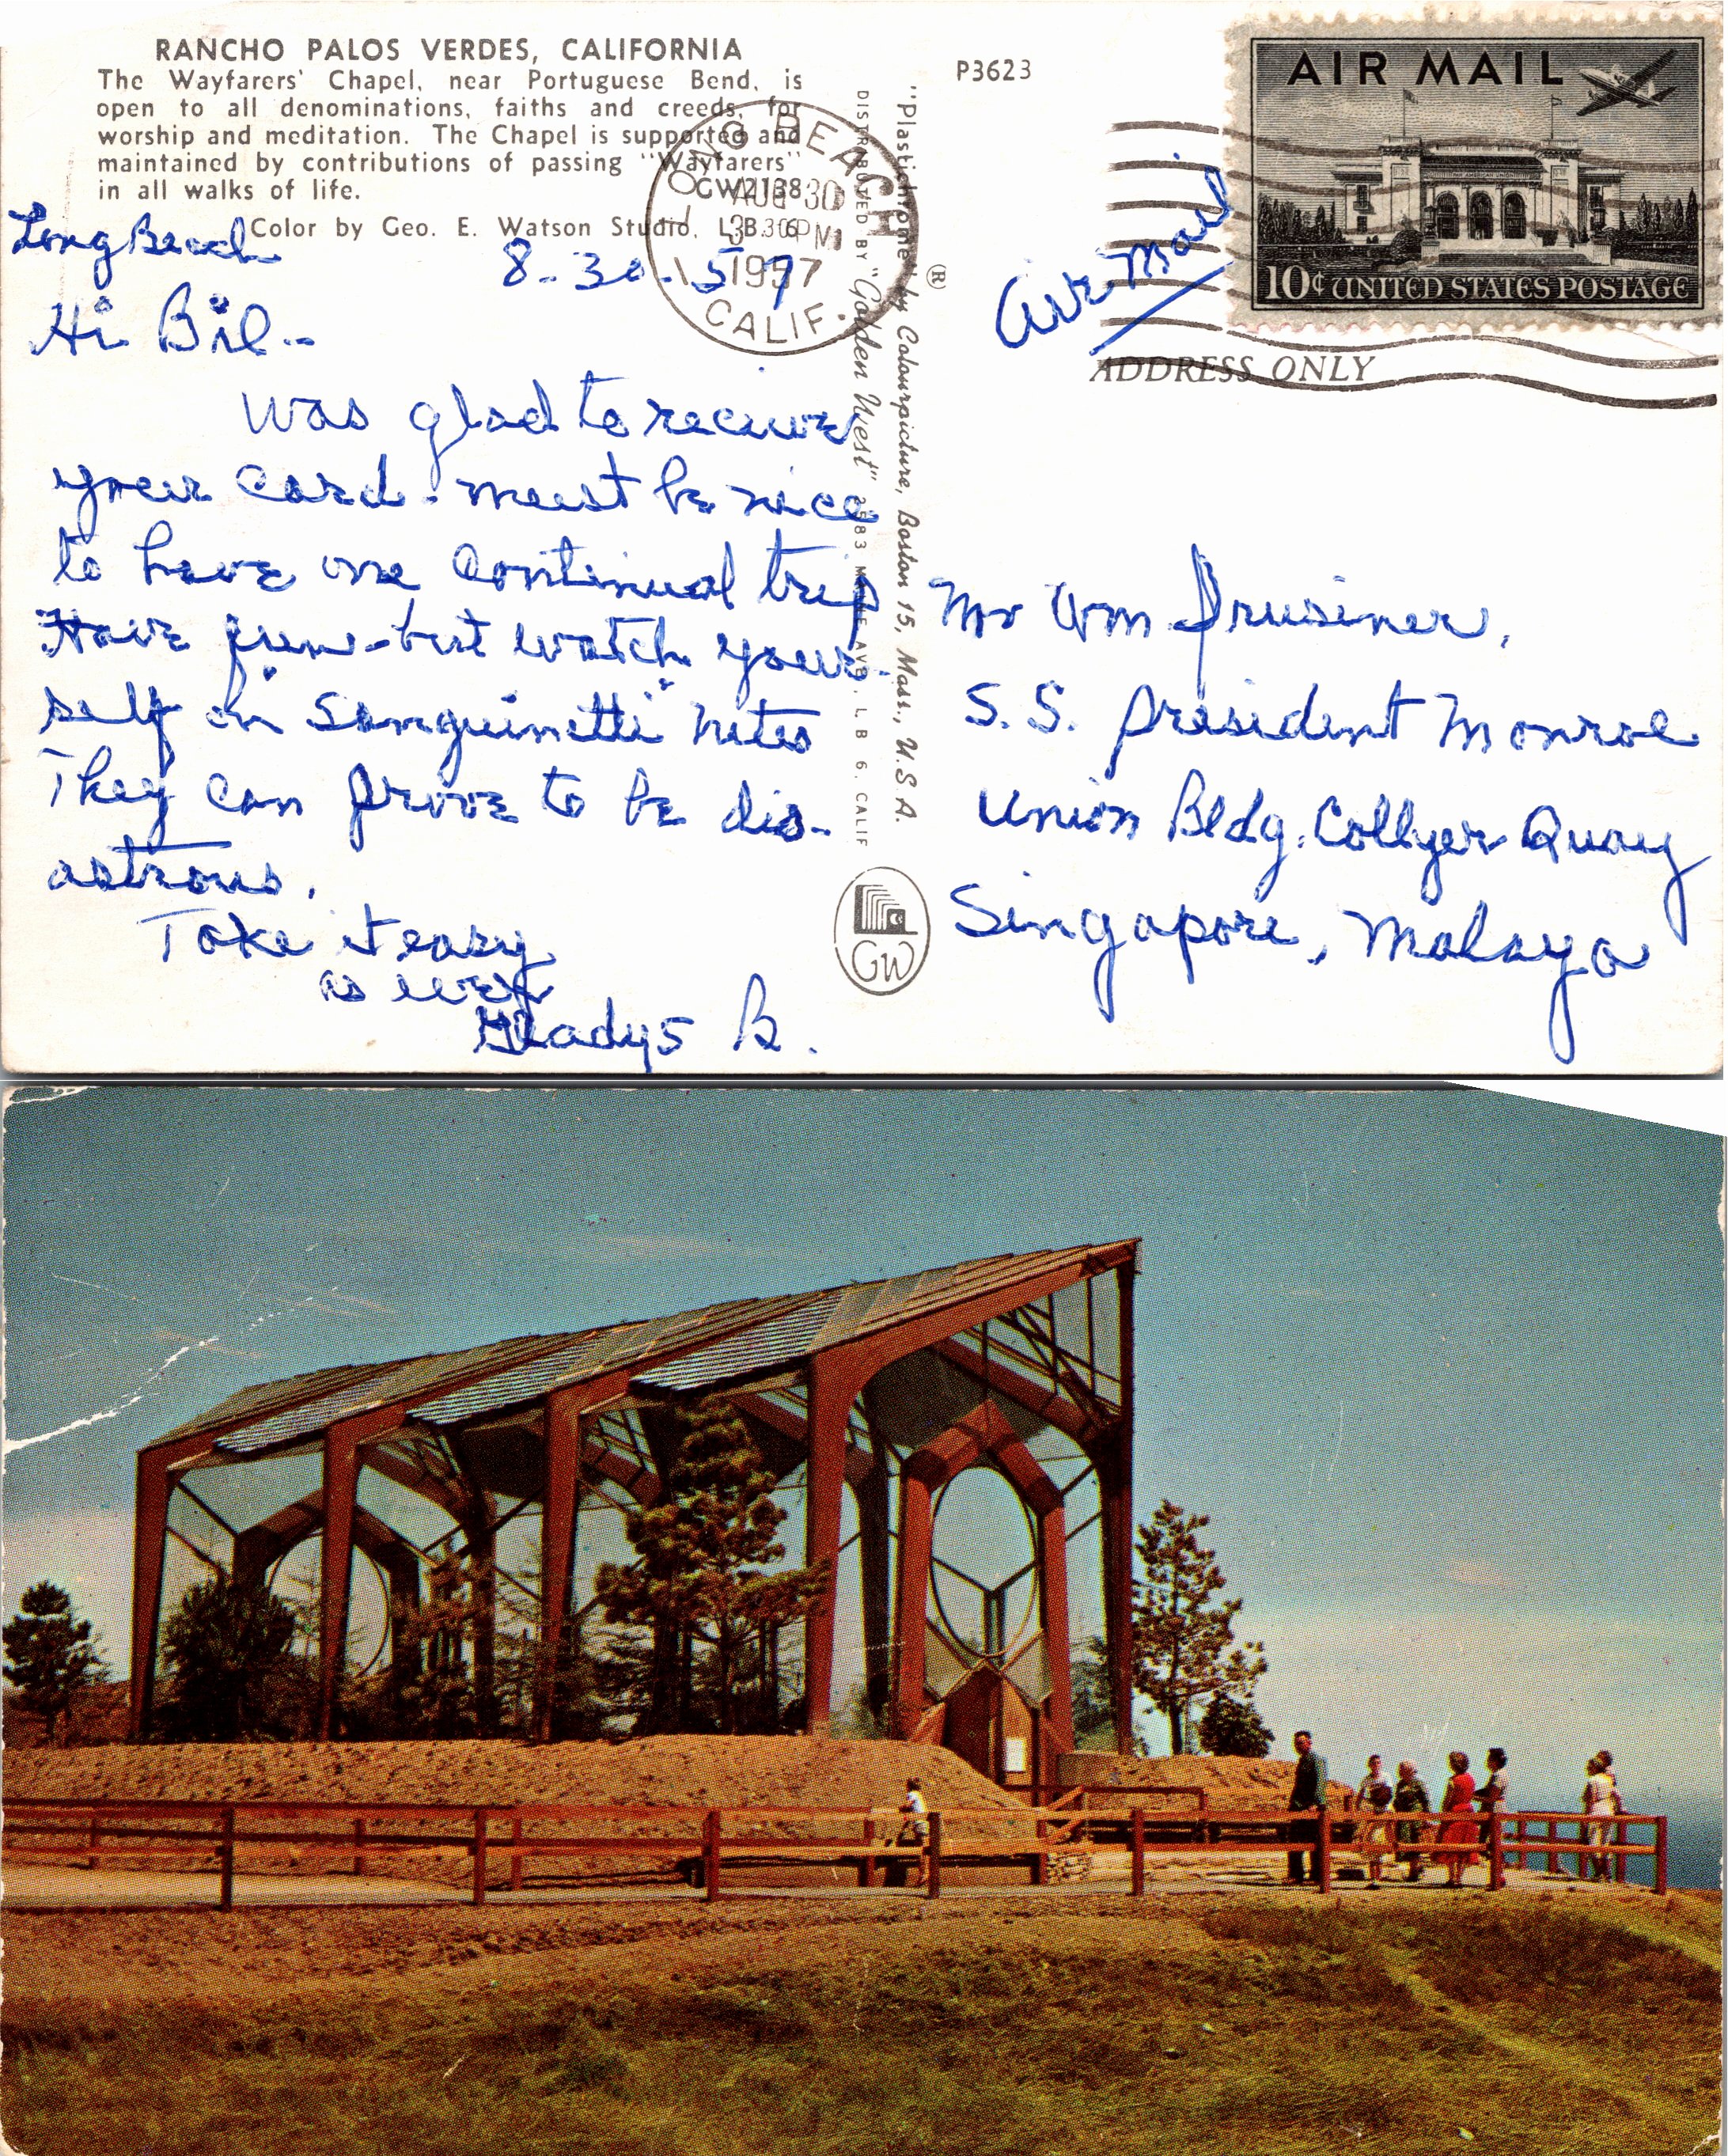 RANCHO PALOS VERDES, CALIFORNIA
The Wayfarers' Chapel, near Portuguese Bend, is
open to all denominations, faiths and creeds, for
worship and meditation. The Chapel is supported and
maintained by contributions of passing "Wayfarers"
in all walks of life.
GW2138
Color by Geo. E. Watson Studio, L. B. 6
P3623
LONG BEACH
AUG 30
3 30 PM
1957
CALIF.
AIR MAIL
10¢ UNITED STATES POSTAGE
Air Mail
ADDRESS ONLY
Long Beach
8-30-57
Hi Bil--
Was glad to receive
your card - must be nice
to have one continual trip
Have fun - but watch your-
self on "Sanguinetti" nites
They can prove to be dis-
astrous.
Take it easy
as ever
Gladys B.
"Plastichrome" ® by Colourpicture, Boston 15, Mass., U.S.A.
DISTRIBUTED BY "Golden West" AVE., L B 6, CALIF
GW
Mr Wm Prusiner,
S.S. President Monroe
Union Bldg. Collyer Quay
Singapore, Malaya